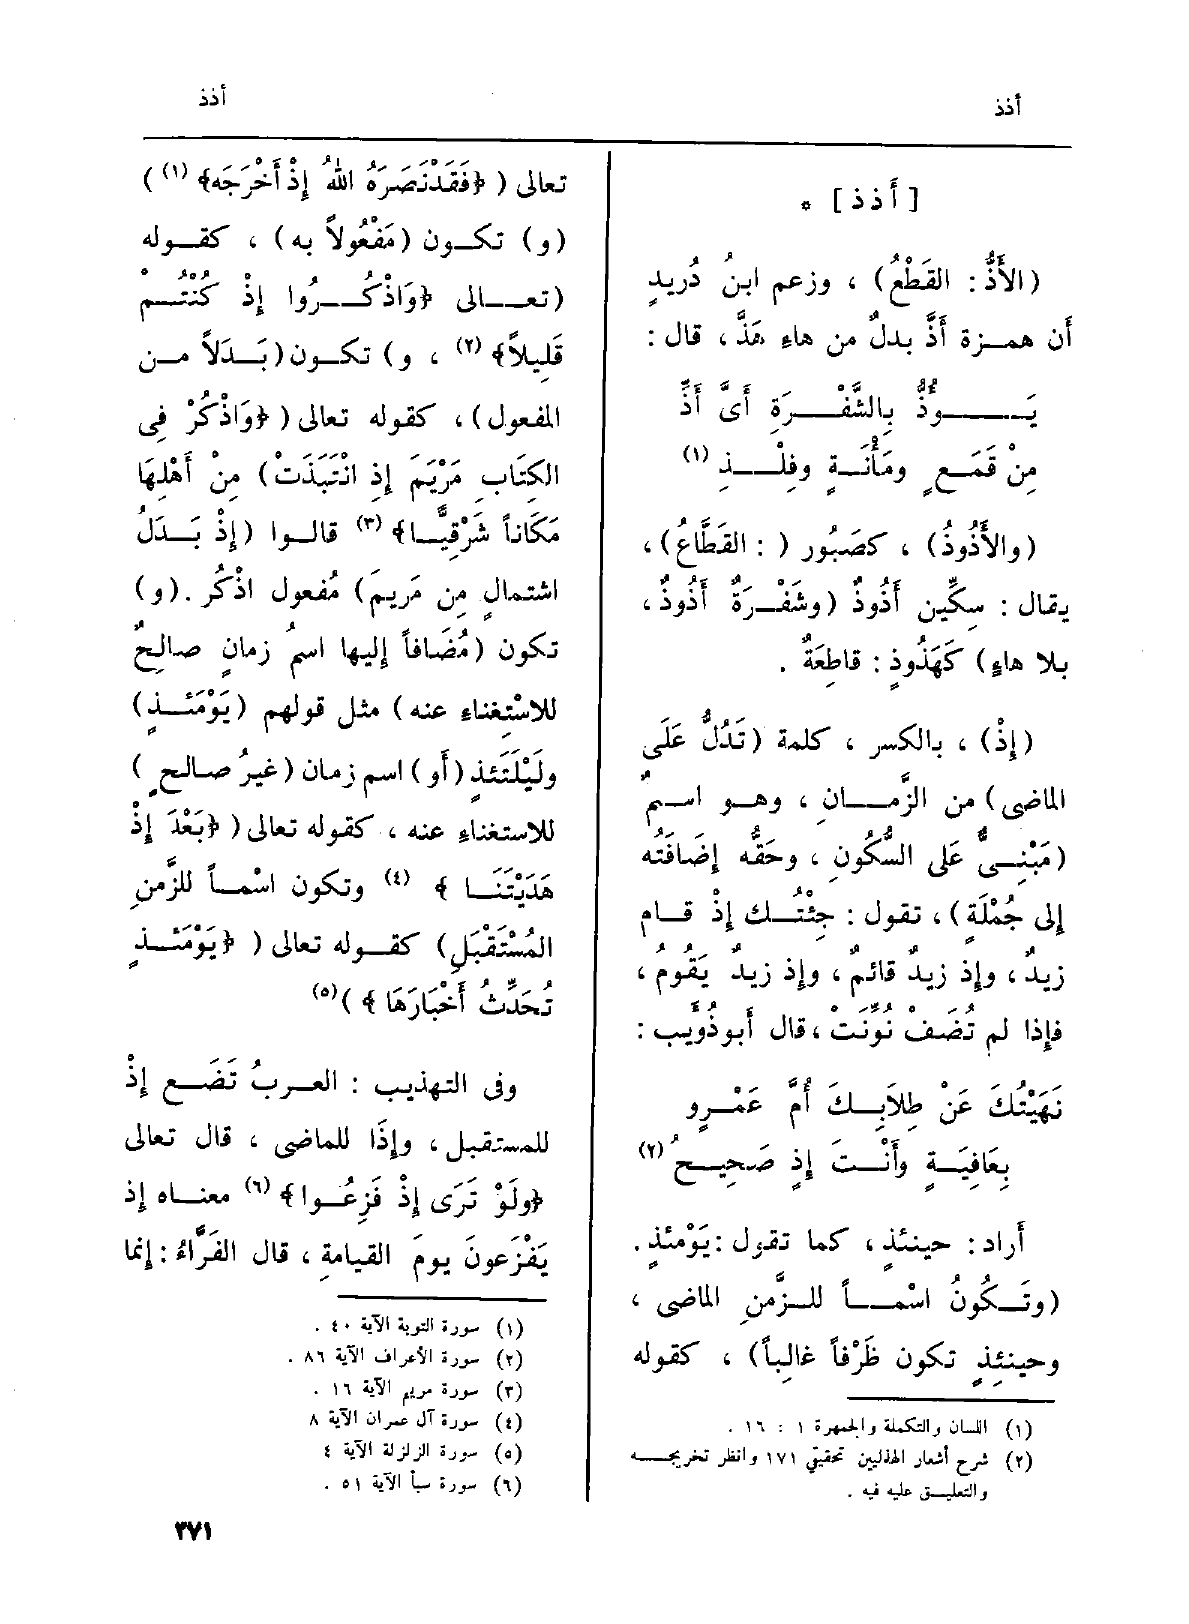 أذذ
أذذ
[ أ ذ ذ ] *
(الأَذُّ : القَطْعُ) ، وزعم ابنُ دُريدٍ
أن همـزة أَذَّ بدلٌ من هاءِ هَذَّ ، قال :
يَـــؤُذُّ بِالشَّفْــرَةِ أَىَّ أَذِّ
مِنْ قَمَـعٍ ومَأْنَـةٍ وفِلْـــذِ (١)
(والأَذُوذُ) ، كصَبُور ( : القَطَّاعُ) ،
يقال : سِكِّين أَذُوذٌ (وشَفْـرَةٌ أَذُوذٌ ،
بلا هاءٍ) كَهَذُوذٍ : قاطِعَةٌ .
(إِذْ) ، بالكسر ، كلمة (تَدُلُّ عَلَى
الماضى) من الزَّمــانِ ، وهـو اسـمٌ
(مَبْنِـىٌّ عَلى السُّكُونِ ، وحَقُّه إِضَافَتُه
إِلى جُمْلَةٍ) ، تقول : جِئْتُـك إِذْ قـام
زيدٌ ، وإِذ زيدٌ قائمٌ ، وإِذ زيدٌ يَقُومُ ،
فإِذا لم تُضَفْ نُوِّنَتْ ، قال أَبوذُؤَيْب :
نَهَيْتُكَ عَنْ طِلاَبِـكَ أُمَّ عَمْـرٍو
بِعَافِيَـةٍ وأَنْـتَ إِذٍ صَحِيـحُ (٢)
أَراد : حينئذٍ ، كما تقول : يَوْمئذٍ .
(وتَـكُونُ اسْمــاً للـزَّمنِ الماضى ،
وحينِئِذٍ تكون ظَرْفاً غالِباً) ، كقوله
(١) اللسان والتكملة والجمهرة ١ : ١٦ .
(٢) شرح أشعار الهذليين تحقيقي ١٧١ وانظر تخريجـه
والتعليـق عليه فيه .
تعالى ( ﴿فَقَدْنَصَرَهُ اللهُ إِذْ أَخْرَجَه﴾ (١) )
(و) تكـون (مَفْعُولاً به) ، كقـوله
(تعــالى ﴿وَاذْكُــرُوا إِذْ كُنْتُـمْ
قَلِيلاً﴾ (٢) ، و) تكـون (بَـدَلاً مـن
المفعول) ، كقوله تعالى ( ﴿وَاذْكُرْ فِى
الكِتَابِ مَرْيَمَ إِذِ انْتَبَذَتْ) مِنْ أَهْلِهَا
مَكَاناً شَرْقِيًّـا﴾ (٣) قالـوا (إِذْ بَـدَلُ
اشتمالٍ مِن مَريمَ) مُفعول اذْكُر . (و)
تكون (مُضَافاً إِليها اسمُ زمانٍ صالِحٌ
للاسْتِغناءِ عنه) مثل قولهم (يَوْمَئـذٍ)
ولَيْلَتَئذٍ (أَو) اسم زمان (غيرُ صالحٍ)
للاستغناءِ عنه ، كقوله تعالى ( ﴿بَعْدَ إِذْ
هَدَيْتَنَـا ﴾ (٤) وتكون اسْمـاً للزَّمنِ
المُسْتَقْبَلِ) كقـوله تعالى ( ﴿يَوْمَئـذٍ
تُحَدِّثُ أَخْبَارَهَا ﴾ ) (٥)
وفى التهذيب : العـربُ تَضَـع إِذْ
للمستقبل ، وإِذَا للماضى ، قال تعالى
﴿ولَوْ تَرَى إِذْ فَزِعُـوا﴾ (٦) معنـاه إِذ
يَفْزَعونَ يومَ القيامةِ ، قال الفَرَّاءُ : إِنما
(١) سورة التوبة الآية ٤٠ .
(٢) سورة الأعراف الآية ٨٦ .
(٣) سورة مريم الآية ١٦ .
(٤) سورة آل عمران الآية ٨
(٥) سورة الزلزلة الآية ٤
(٦) سورة سبأ الآية ٥١ .
٣٧١